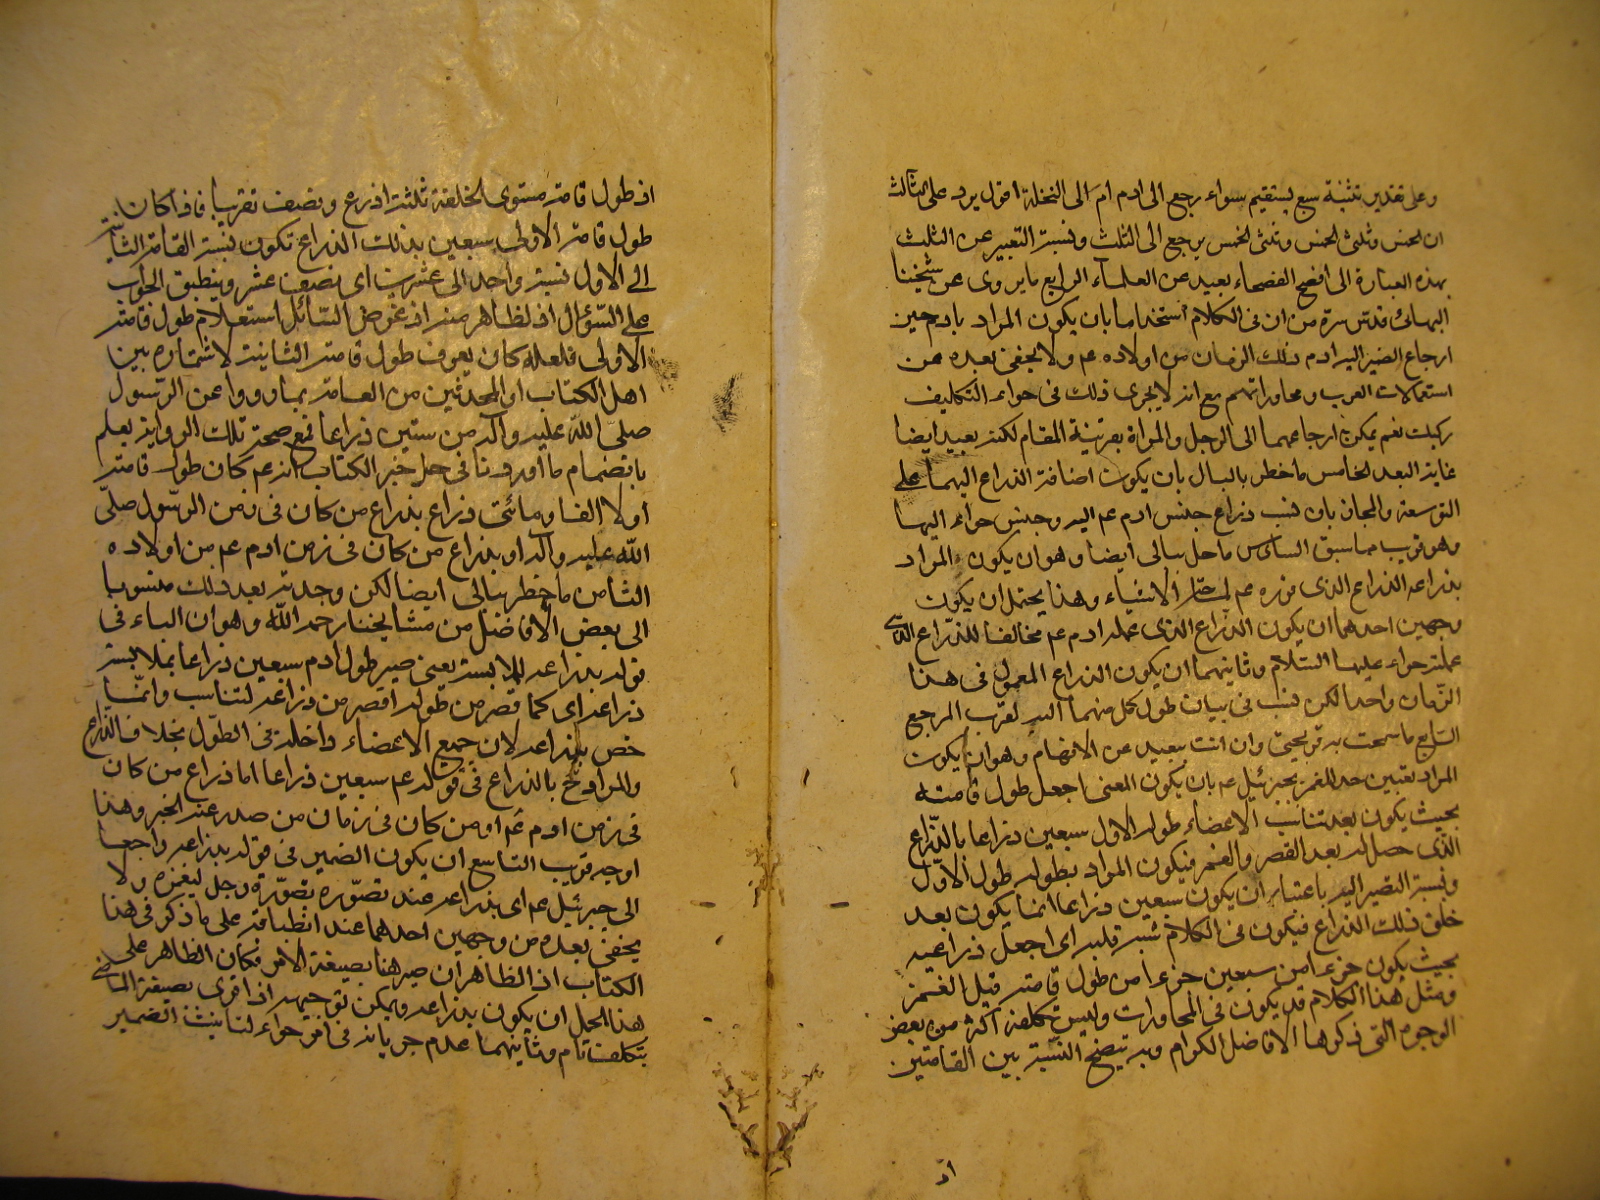 وعلى تقدير تثنية سبع يستقيم سواء رجع الى ادم ام الى النخلة اقول يرد على الثالث
ان الخمس وثلثى الخمس وثلثى الخمس يرجع الى الثلث ونسبة التعبير عن الثلث
بهذه العبارة الى افصح الفصحاء بعيد عن العلماء الرابع ما يروى عن شيخنا
البهائى قدس سره من ان فى الكلام استخداما بان يكون المراد بادم حين
ارجاع الضمير اليه ادم ذلك الزمان من اولاده عم ولا يخفى بعده عن
استعمالات العرب ومحاوراتهم مع انه لا يجرى ذلك فى حواء الا بتكليف
ركيك نعم يمكن ارجاعهما الى الرجل والمراة بقرينة المقام لكنه بعيد ايضا
غاية البعد الخامس ما خطر بالبال بان يكون اضافة الذراع اليهما على
التوسعة والمجاز بان نسب ذراع جنس ادم عم اليه وجنس حواء اليها
وهو قريب مما سبق السادس ما حل ببالى ايضا وهو ان يكون المراد
بذراعه الذراع الذى قرره عم لمساحة الاشياء وهذا يحتمل ان يكون
وجهين احدهما ان يكون الذراع الذى عمله ادم عم مخالفا للذراع الذى
عملته حواء عليها السلام وثانيهما ان يكون الذراع المعمول فى هذا
الزمان واحدا لكن نسب فى بيان طول كل منهما اليه لقرب المرجع
السابع ما سمحت به قريحتى وان اتت ببعيد عن الافهام وهو ان يكون
المراد تعيين حد للغمز لجبرئيل عم بان يكون المعنى اجعل طول قامته
بحيث يكون بعد تناسب الاعضاء طوله الاول سبعين ذراعا بالذراع
الذى حصل له بعد القصر والغمز فيكون المراد بطوله طول الاول
ونسبة التصيير اليه باعتبار ان يكون سبعين ذراعا انما يكون بعد
خلق ذلك الذراع فيكون فى الكلام شبه قلب اى اجعل ذراعه
بحيث يكون جزءا من سبعين جزءا من طول قامته قبل الغمز
ومثل هذا الكلام قد يكون فى المحاورات وليس تكلفه اكثر من بعض
الوجوه التى ذكرها الافاضل الكرام وبه يتضح النسبة بين القامتين
اذ
اذ طول قامة مستوى الخلقة ثلثة اذرع ونصف تقريبا فاذا كان
طول قامته الاولى سبعين بذلك الذراع تكون نسبة القامة الثانية
الى الاولى نسبة واحد الى عشرين اى نصف عشر وينطبق الجواب
على السؤال اذ الظاهر منه ان غرض السائل استعلام طول قامته
الاولى فلعله كان يعرف طول قامته الثانية لاشتهاره بين
اهل الكتاب او المحدثين من العامة بما رووا عن الرسول
صلى الله عليه وآله من ستين ذراعا فمع صحة تلك الرواية يعلم
بانضمام ما اوردنا فى حل خبر الكتاب انه عم كان طول قامته
اولا الفا ومائتى ذراع بذراع من كان فى زمن الرسول صلى
الله عليه وآله او بذراع من كان فى زمن ادم عم من اولاده
الثامن ما خطر ببالى ايضا لكن وجدته بعد ذلك منسوبا
الى بعض الافاضل من مشايخنا رحمه الله وهو ان الباء فى
قوله بذراعه للملابسة يعنى صير طول ادم سبعين ذراعا بملابسة
ذراعه اى كما قصر من طوله اقصر من ذراعه لتناسب وانما
خص بذراعه لان جميع الاعضاء داخلة فى الطول بخلاف الذراع
والمراد ح بالذراع فى قوله عم سبعين ذراعا اما ذراع من كان
فى زمن ادم عم او من كان فى زمان من صدر عنه الخبر وهذا
اوجه قريب التاسع ان يكون الضمير فى قوله بذراعه راجعا
الى جبرئيل عم اى بذراعه عند تصوره بصورة رجل ليغمزه ولا
يخفى بعده من وجهين احدهما عند انطباقه على ما ذكر فى هذا
الكتاب اذ الظاهر ان صير هنا بصيغة الامر فكان الظاهر على
هذا الحمل ان يكون بذراعه ويمكن توجيهه اذا قرئ بصيغة الماضى
بتكلف تام وثانيهما عدم جريانه فى امر حواء لتانيث الضمير